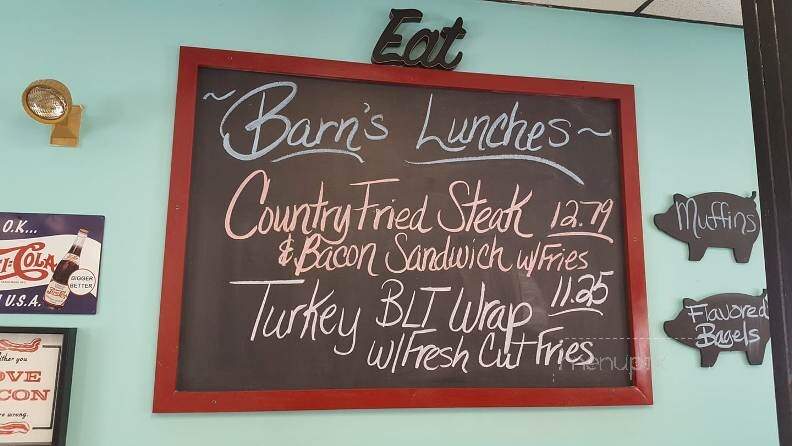 Eat
~ Barn's Lunches ~
Country Fried Steak 12.79
& Bacon Sandwich w/Fries
Turkey BLT Wrap 11.25
w/Fresh Cut Fries
Muffins
Flavored
Bagels
O.K...
I-COLA
BIGGER
BETTER
U.S.A.
ither you
OVE
CON
re wrong.
menupix